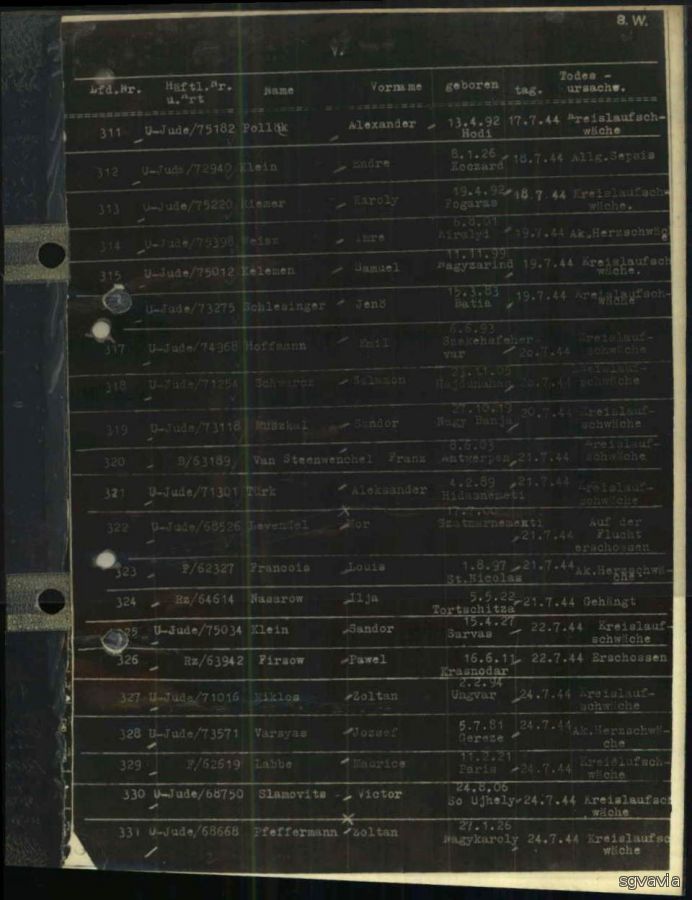 8. W.
V.
Lfd.Nr. Häftl.Nr. u.Art Name Vorname geboren tag. Todes-ursache.
311 U-Jude/75182 Pollak Alexander 13.4.92 17.7.44 Kreislaufsch-
Hodi wäche
312 U-Jude/72940 Klein Endre 8.1.26 18.7.44 Allg.Sepsis
313 U-Jude/75220 Riemer Karoly 19.4.92 18.7.44 Kreislaufsch-
Fogaras wäche.
314 U-Jude/75398 Weisz Imre 19.7.44 Ak.Herzschwäc
315 U-Jude/75012 Kelemen Samuel 11.11.99 19.7.44 Kreislaufsch
Nagyzarind wäche.
U-Jude/73275 Schlesinger Jenö 15.3.83 19.7.44 Kreislaufsch-
Batia wäche
317 U-Jude/74968 Hoffmann Emil 6.6.93
Szekehsfeher-
var 20.7.44 Kreislauf-
schwäche
318 U-Jude/71254 Schwarcz Salamon 20.7.44
schwäche
319 U-Jude/73118 Muszkal Sandor 27.10.19 20.7.44 Kreislauf-
Nagy Banja schwäche
320 B/63189 Van Steenwenchel Franz 8.6.03 Kreislauf-
Antwerpen 21.7.44 schwäche
321 U-Jude/71301 Türk Aleksander 4.2.89 21.7.44 Kreislauf-
Hidasnemeti schwäche
322 U-Jude/68526 Levendel Mor 17.7.00
Szatmarnemeti Auf der
21.7.44 Flucht
erschossen
323 F/62327 Francois Louis 1.8.97 21.7.44 Ak.Herzschwä-
St.Nicolas che.
324 Rz/64614 Nasarow Ilja 5.5.22 21.7.44 Gehängt
Tortschitza
325 U-Jude/75034 Klein Sandor 15.4.27 22.7.44 Kreislauf-
Sarvas schwäche
326 Rz/63942 Firsow Pawel 16.6.11 22.7.44 Erschossen
Krasnodar
327 U-Jude/71016 Miklos Zoltan 2.2.94
Ungvar 24.7.44 Kreislauf-
schwäche
328 U-Jude/73571 Varsyas Jozsef 5.7.81 24.7.44 Ak.Herzschwä-
Gereze che
329 F/62619 Labbe Maurice 11.2.21 Kreislaufsch-
Paris 24.7.44 wäche
330 U-Jude/68750 Slamovits Victor 24.8.06
So Ujhely 24.7.44 Kreislaufsc
wäche
331 U-Jude/68668 Pfeffermann Zoltan 27.1.26
Nagykaroly 24.7.44 Kreislaufsc
wäche
sgvavia